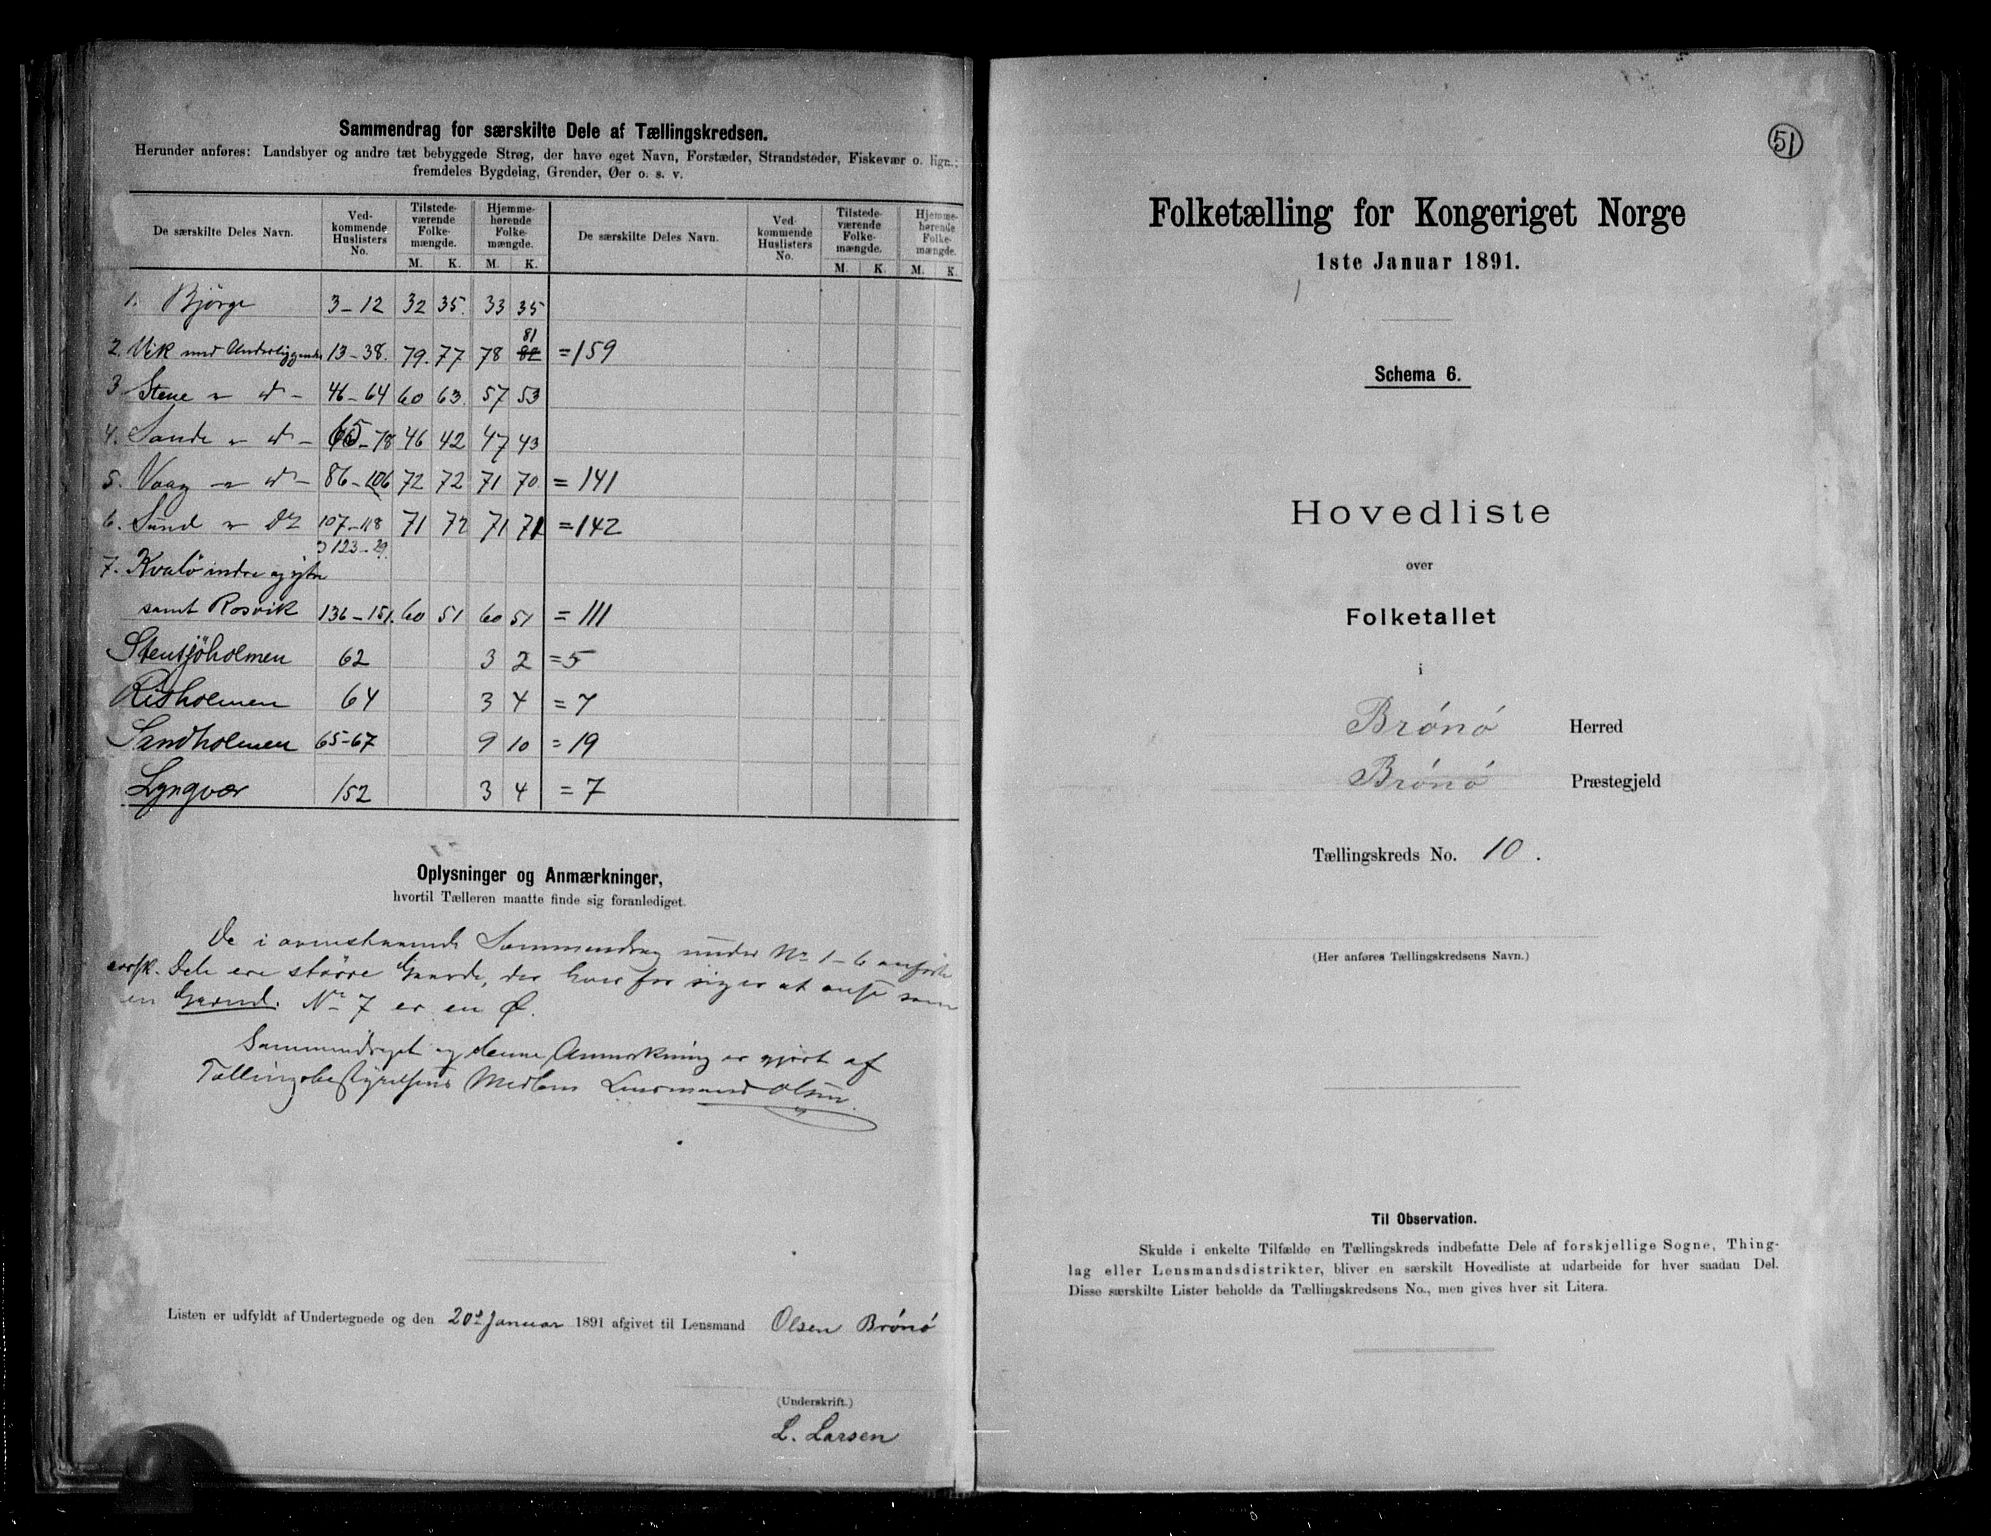 Sammendrag for særskilte Dele af Tællingskredsen.
Herunder anføres: Landsbyer og andre tæt bebyggede Strøg, der have eget Navn, Forstæder, Strandsteder, Fiskevær o. lign.;
fremdeles Bygdelag, Grender, Øer o. s. v.
De særskilte Deles Navn. Ved-kommende Huslisters No. Tilstede-værende Folke-mængde. Hjemme-hørende Folke-mængde. De særskilte Deles Navn. Ved-kommende Huslisters No. Tilstede-værende Folke-mængde. Hjemme-hørende Folke-mængde.
M. K. M. K. M. K. M. K.
1. Bjørge 3-12 32 35. 33 35
81
2. Vik med Underliggende 13-38. 79. 77 78 82 =159
3 Stene " d - 46-64 60 63. 57 53
4. Sande " d - 65-78 46 42 47 43
5. Vaag " d - 86-106 72 72 71 70. = 141
6. Sund " do 107-118 71 72 71 71 =142
123-29.
7. Kvalø indre og ytre
samt Rosvik 136-151. 60 51 60 51 = 111
Stensjøholmen 62 3 2 =5
Risholmen 64 3 4 = 7
Sandholmen 65-67 9 10 = 19
Lyngvær 152 3 4 = 7
Oplysninger og Anmærkninger,
hvortil Tælleren maatte finde sig foranlediget.
De i ovenstaaende Sammendrag under No 1-6 anførte
særsk. Dele ere større Gaarde, der hver for sig er at anse som
en Grend. No 7 er en Ø.
Sammendraget og denne Anmerkning er gjort af
Tællingsbestyrelsens Medlem Lensmand Olsen.
Listen er udfyldt af Undertegnede og den 20de Januar 1891 afgivet til Lensmand Olsen Brønø
(Underskrift.)
L. Larsen
51
Folketælling for Kongeriget Norge
1ste Januar 1891.
Schema 6.
Hovedliste
over
Folketallet
i
Brønø Herred
Brønø Præstegjeld
Tællingskreds No. 10.
(Her anføres Tællingskredsens Navn.)
Til Observation.
Skulde i enkelte Tilfælde en Tællingskreds indbefatte Dele af forskjellige Sogne, Thing-
lag eller Lensmandsdistrikter, bliver en særskilt Hovedliste at udarbeide for hver saadan Del.
Disse særskilte Lister beholde da Tællingskredsens No., men gives hver sit Litera.